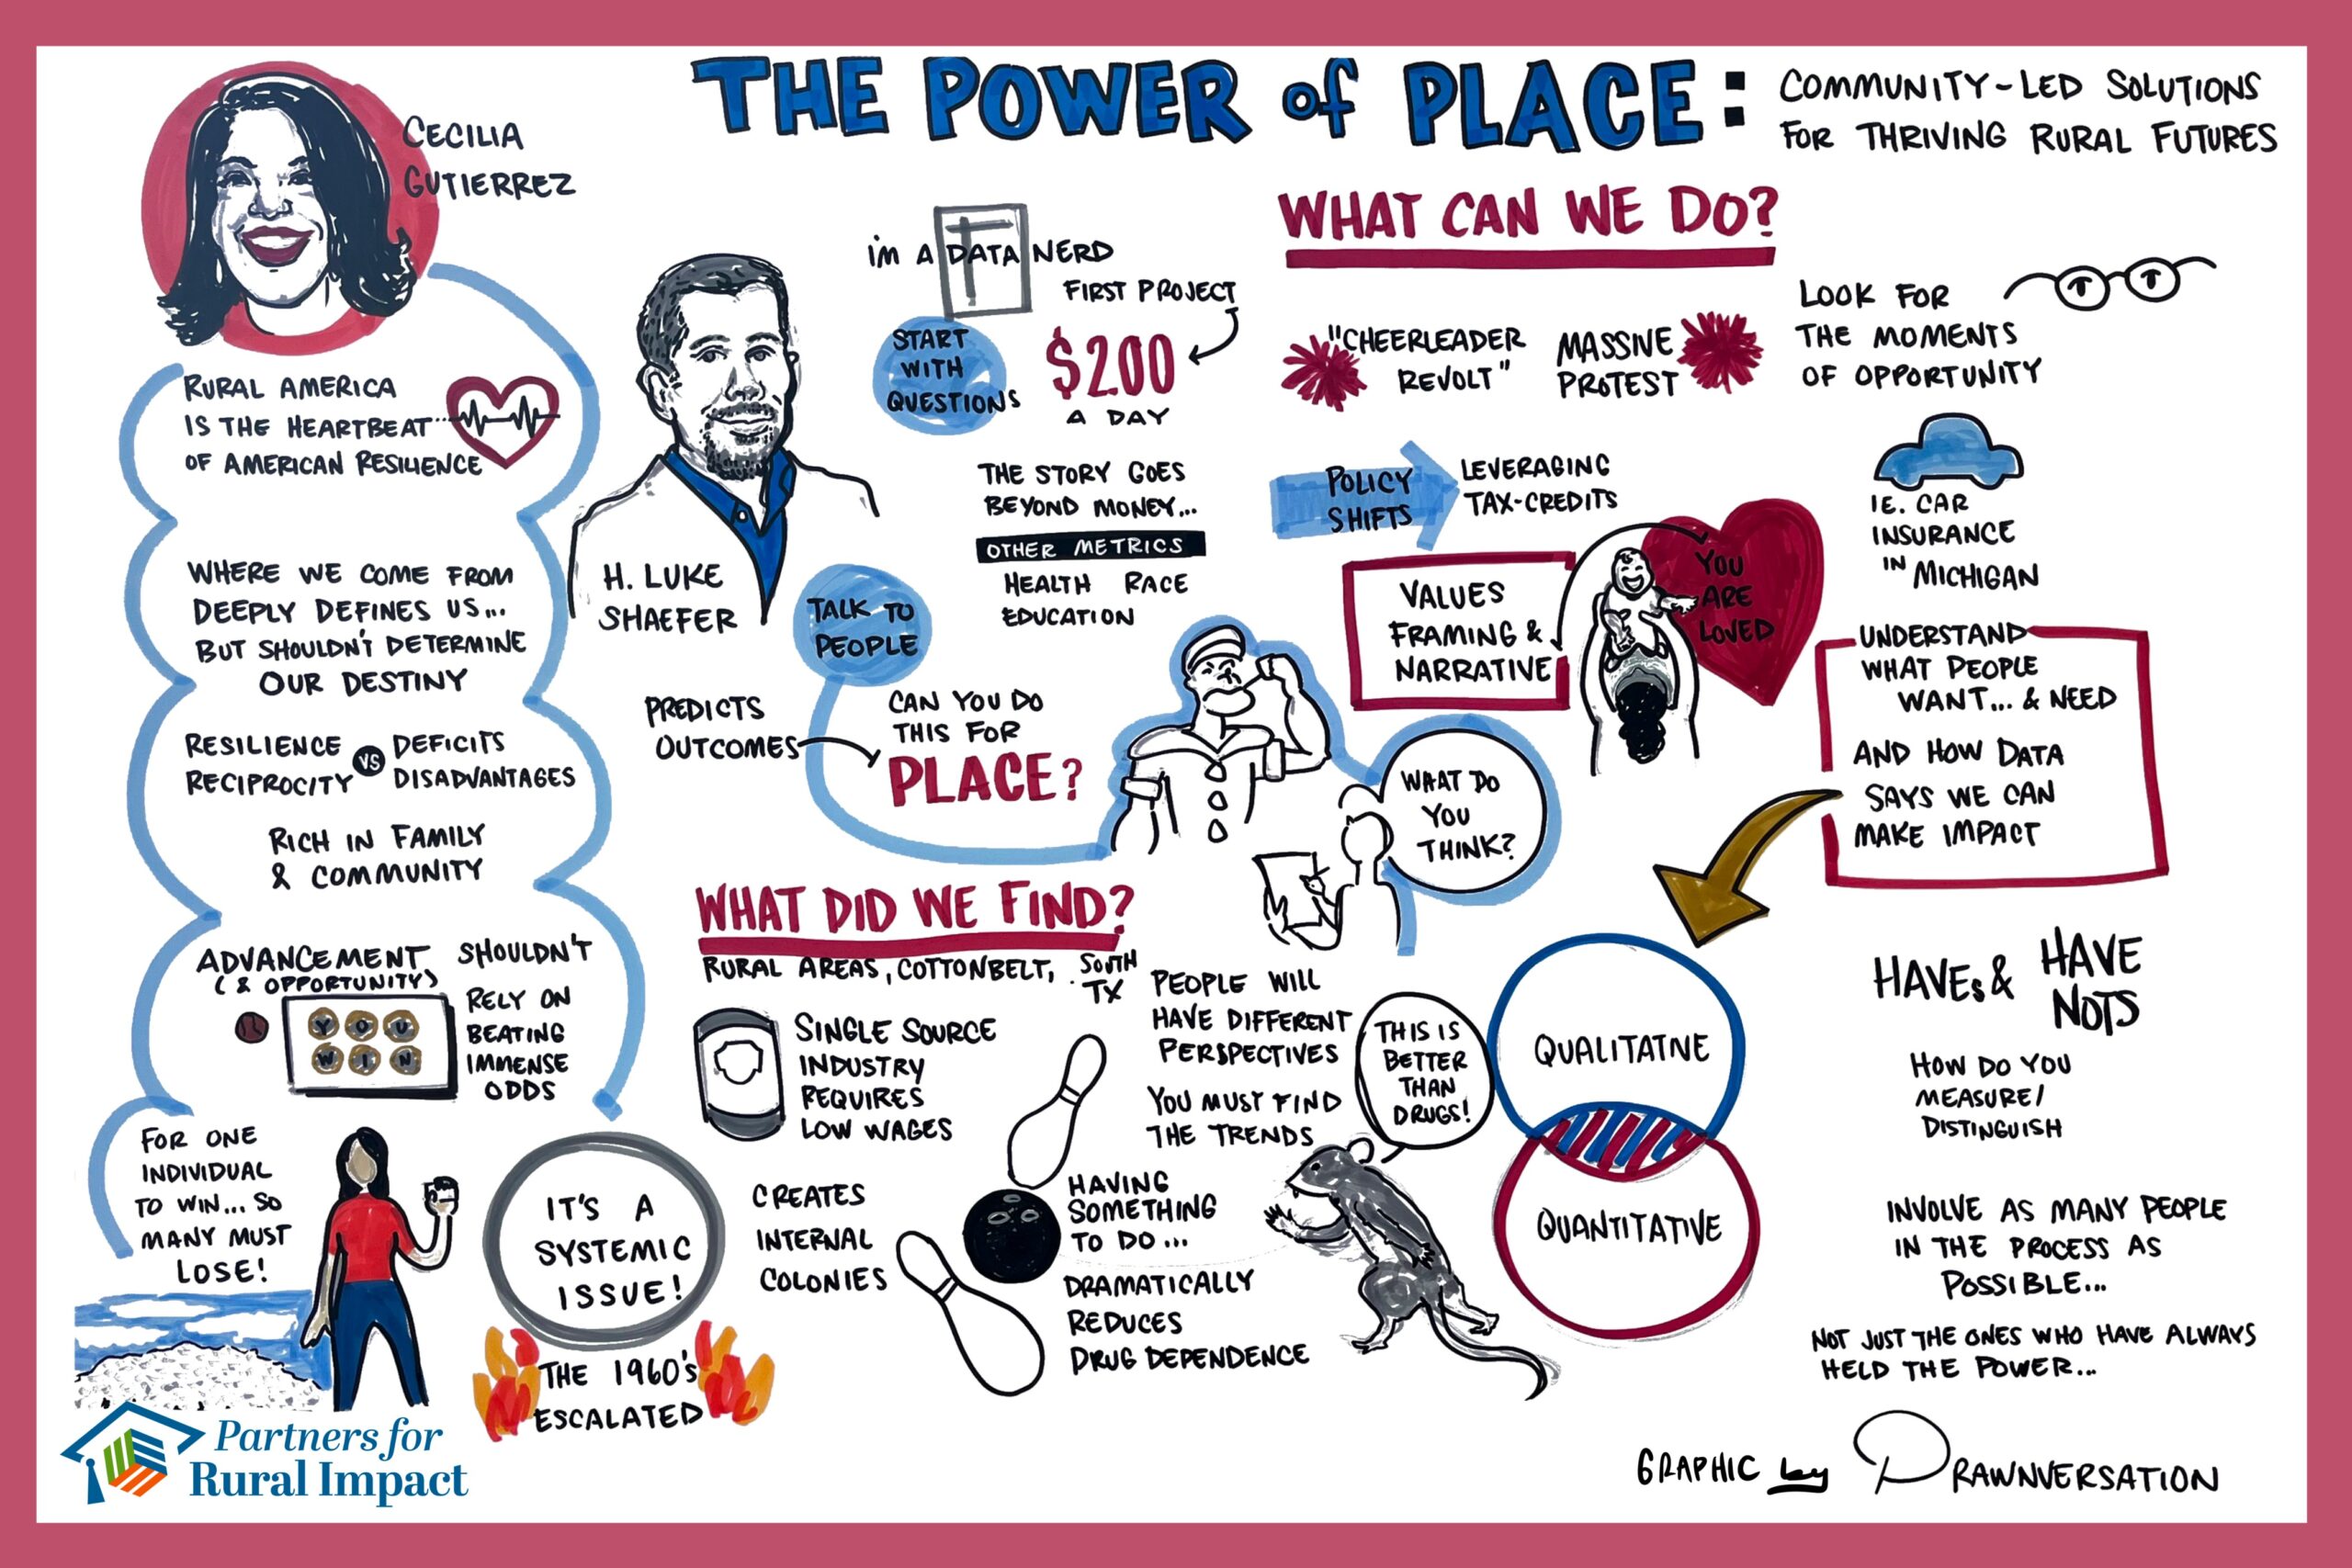 THE POWER of PLACE:
COMMUNITY-LED SOLUTIONS
FOR THRIVING RURAL FUTURES
CECILIA
GUTIERREZ
RURAL AMERICA
IS THE HEARTBEAT
OF AMERICAN RESILIENCE
WHERE WE COME FROM
DEEPLY DEFINES US...
BUT SHOULDN'T DETERMINE
OUR DESTINY
RESILIENCE
RECIPROCITY
VS
DEFICITS
DISADVANTAGES
RICH IN FAMILY
& COMMUNITY
ADVANCEMENT
(& OPPORTUNITY)
SHOULDN'T
RELY ON
BEATING
IMMENSE
ODDS
YOU
WIN
FOR ONE
INDIVIDUAL
TO WIN... SO
MANY MUST
LOSE!
IT'S A
SYSTEMIC
ISSUE!
THE 1960's
ESCALATED
Partners for
Rural Impact
I'M A DATA NERD
FIRST PROJECT
START
WITH
QUESTIONS
$2.00
A DAY
THE STORY GOES
BEYOND MONEY...
OTHER METRICS
HEALTH RACE
EDUCATION
H. LUKE
SHAEFER
TALK TO
PEOPLE
PREDICTS
OUTCOMES
CAN YOU DO
THIS FOR
PLACE?
WHAT DO
YOU
THINK?
WHAT DID WE FIND?
RURAL AREAS, COTTONBELT, SOUTH
TX
SINGLE SOURCE
INDUSTRY
REQUIRES
LOW WAGES
CREATES
INTERNAL
COLONIES
PEOPLE WILL
HAVE DIFFERENT
PERSPECTIVES
YOU MUST FIND
THE TRENDS
HAVING
SOMETHING
TO DO...
DRAMATICALLY
REDUCES
DRUG DEPENDENCE
THIS IS
BETTER
THAN
DRUGS!
WHAT CAN WE DO?
"CHEERLEADER
REVOLT"
MASSIVE
PROTEST
LOOK FOR
THE MOMENTS
OF OPPORTUNITY
POLICY
SHIFTS
LEVERAGING
TAX-CREDITS
IE. CAR
INSURANCE
IN MICHIGAN
VALUES
FRAMING &
NARRATIVE
YOU
ARE
LOVED
UNDERSTAND
WHAT PEOPLE
WANT... & NEED
AND HOW DATA
SAYS WE CAN
MAKE IMPACT
QUALITATIVE
QUANTITATIVE
HAVEs & HAVE
NOTS
HOW DO YOU
MEASURE/
DISTINGUISH
INVOLVE AS MANY PEOPLE
IN THE PROCESS AS
POSSIBLE...
NOT JUST THE ONES WHO HAVE ALWAYS
HELD THE POWER...
GRAPHIC by DRAWNVERSATION